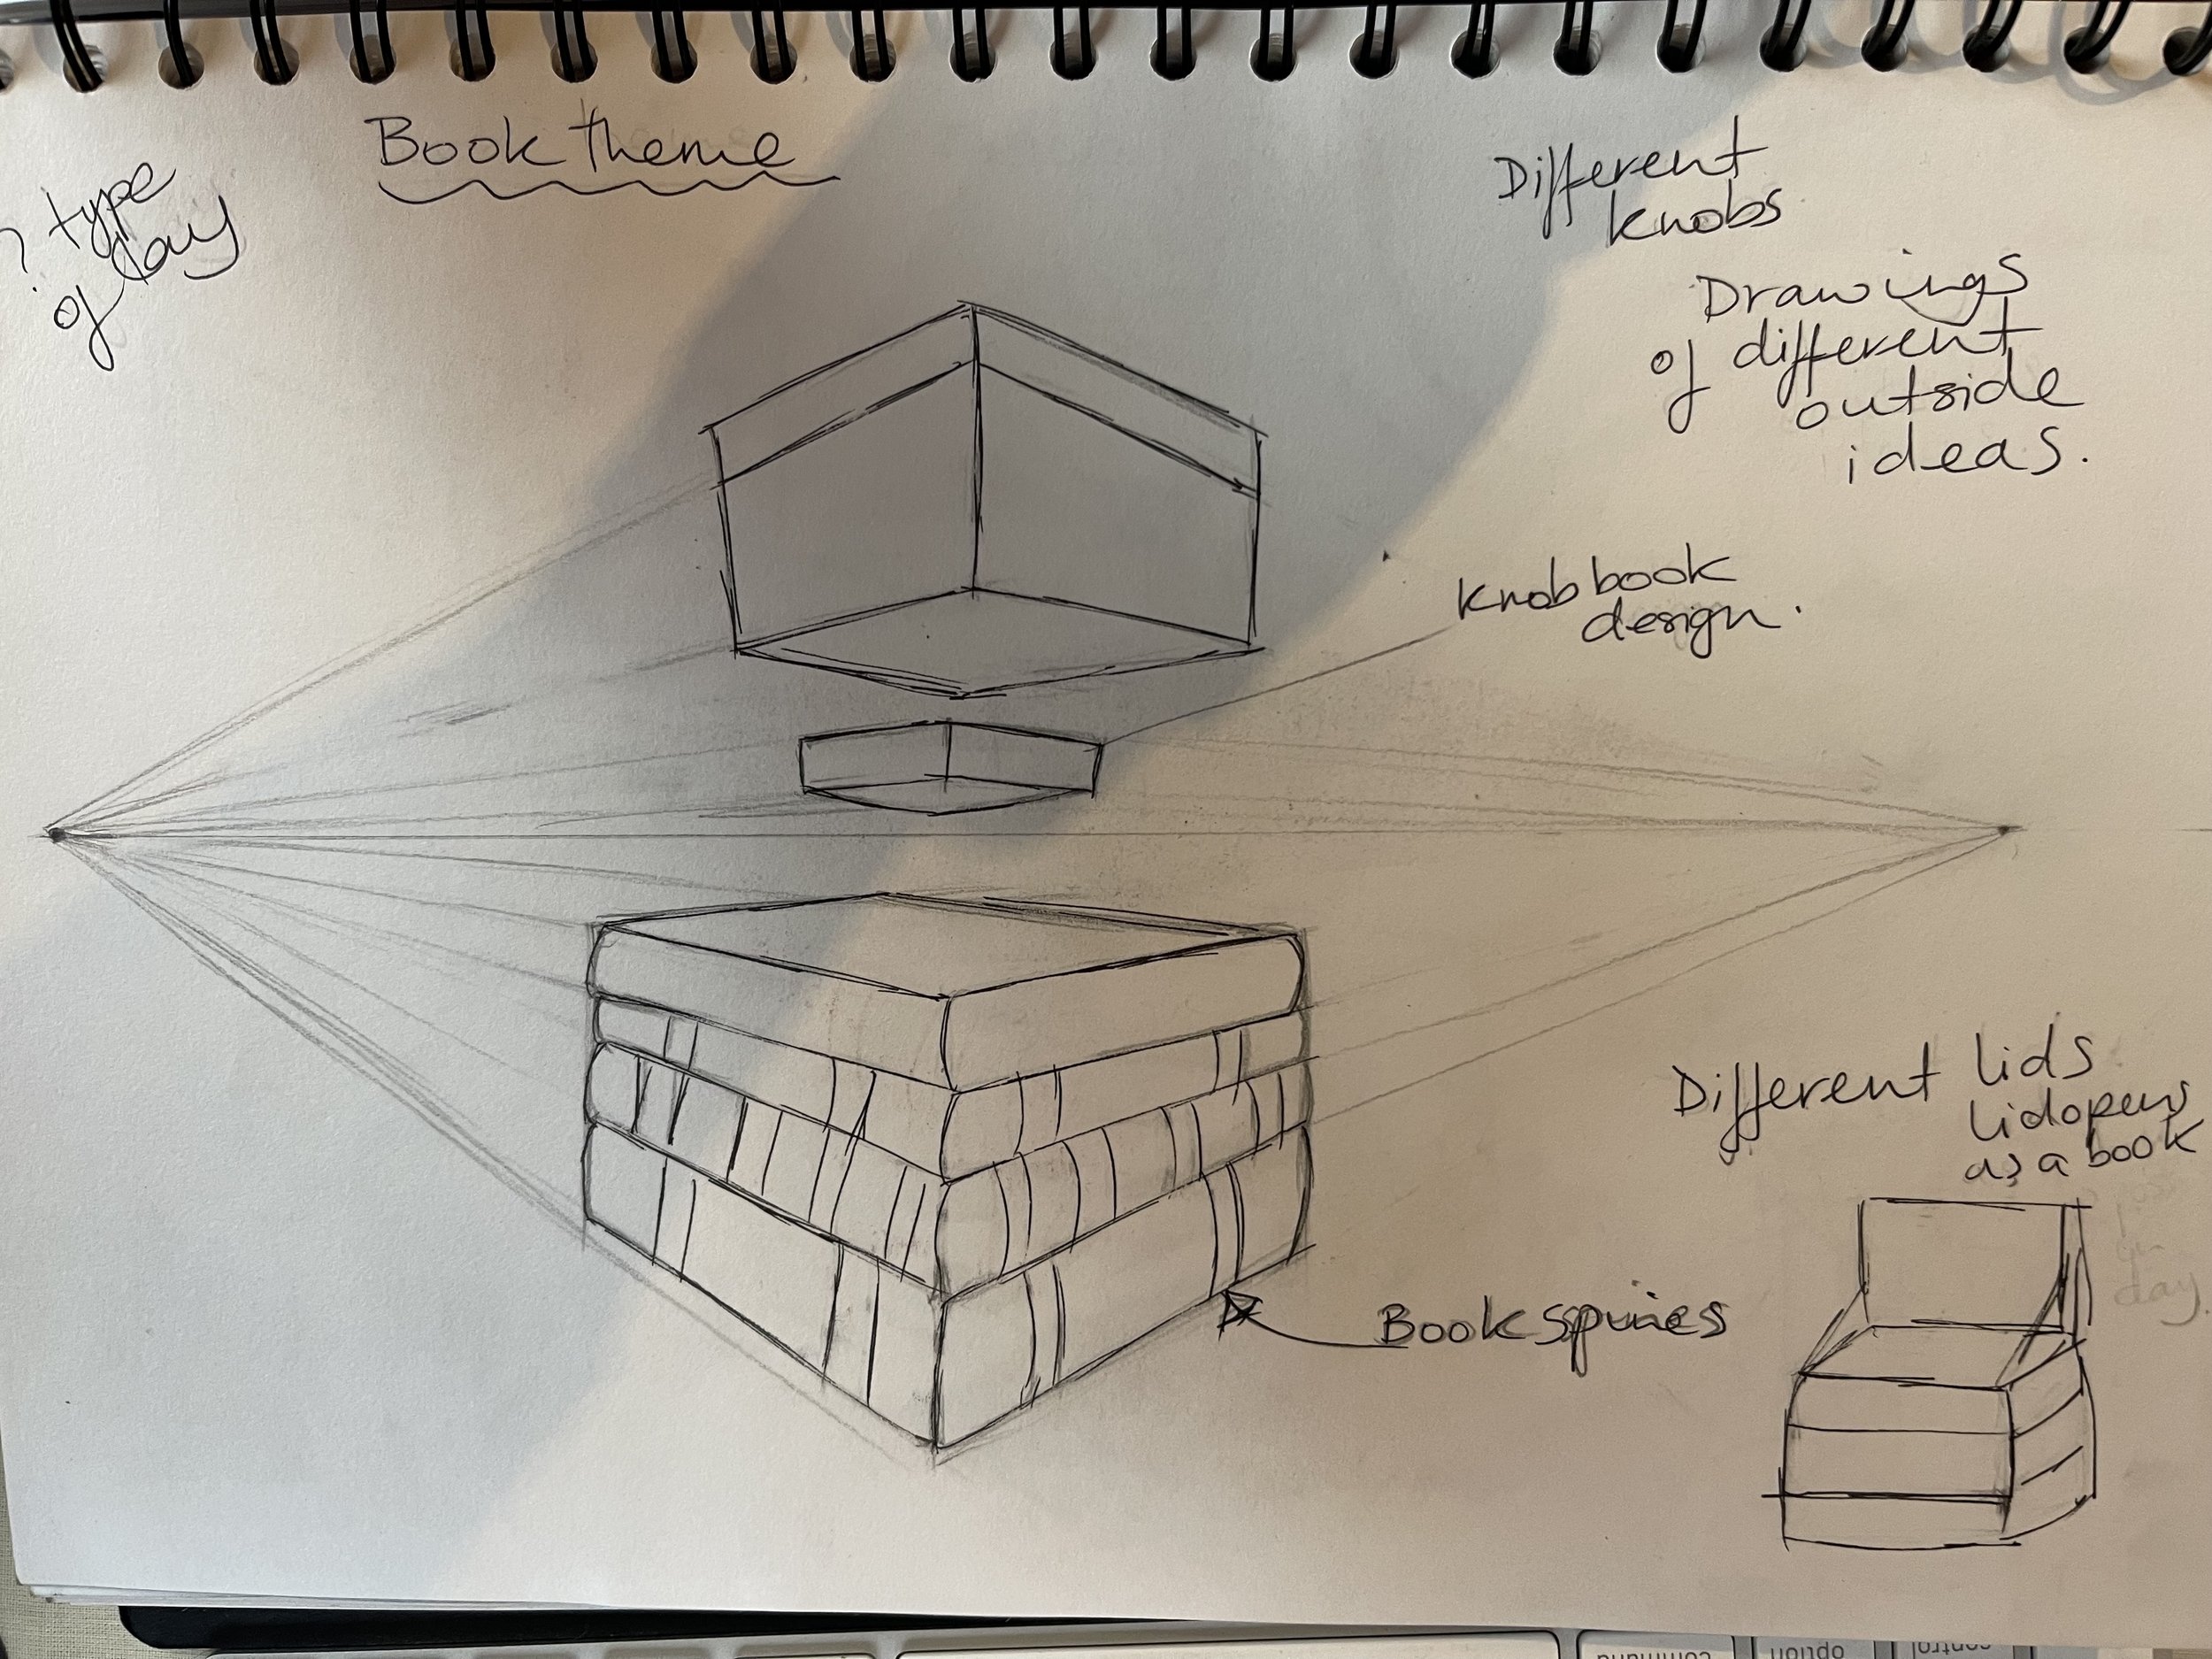 Book theme
? type
of day
Different
knobs
Drawings
of different
outside
ideas.
Knob book
design.
Different lids
lid opens
as a book
day.
Book spines
command
option
control